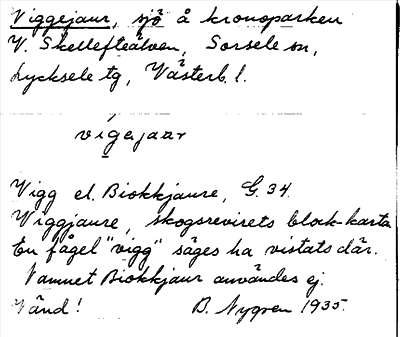 Viggejaur, sjö å kronoparken
V. Skellefteälven, Sorsele sn,
Lycksele tg, Västerb. l.
vígejaar
Vigg el. Biokkjaure, G. 34.
Viggjaure, skogsrevirets block-karta
En fågel "vigg" säges ha vistats där.
Namnet Biokkjaur användes ej.
Vänd! B. Nygren 1935.